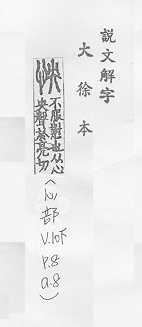 説文解字
大徐本
怏
不服懟也从心
央聲於亮切
(心部
V.10下
P.8
a.8)